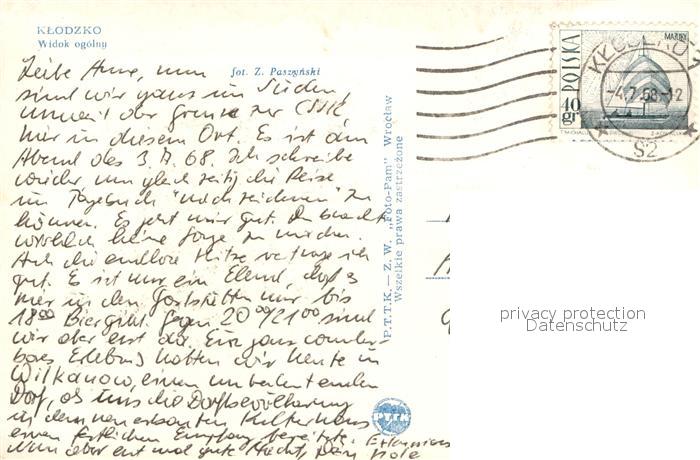 KŁODZKO
Widok ogólny
fot. Z. Paszyński
Liebe Anne, nun
sind wir ganz im Süden,
unweit der Grenze zur CSSR
hier in diesem Ort. Es ist der
Abend des 3.7.68. Ich schreibe
wieder, um gleichzeitig die Reise
im Tagebuch "nachzeichnen" zu
können. Es geht mir gut. Du brauchst
wirklich keine Sorge zu machen.
Auch die endlose Hitze vertrage ich
gut. Es ist nur ein Elend, daß es
hier in den Gaststätten nur bis
18⁰⁰ Bier gibt. Gegen 20⁰⁰/21⁰⁰ sind
wir aber erst da. Ein ganz wunder-
bares Erlebnis hatten wir heute in
Wilkanow, einem unbedeutenden
Dorf, als uns die Dorfbevölkerung
in dem neuerbauten Kulturhaus
einen festlichen Empfang bereitete.
Nun aber erst mal gute Nacht, Dein
P.T.T.K. — Z. W. „Foto-Pam" Wrocław
Wszelkie prawa zastrzeżone
PTTK
POLSKA
40 gr
-4.7.68-12
S2
privacy protection
Datenschutz